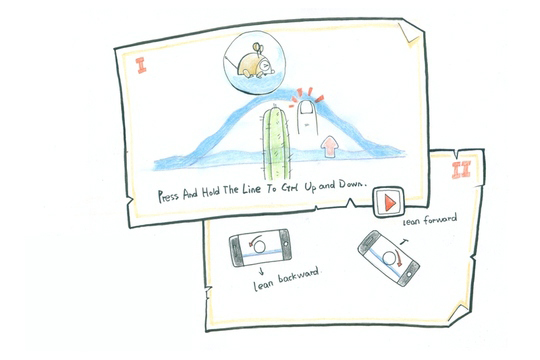 I
Press And Hold The Line To Ctrl Up and Down.
II
lean forward
lean backward